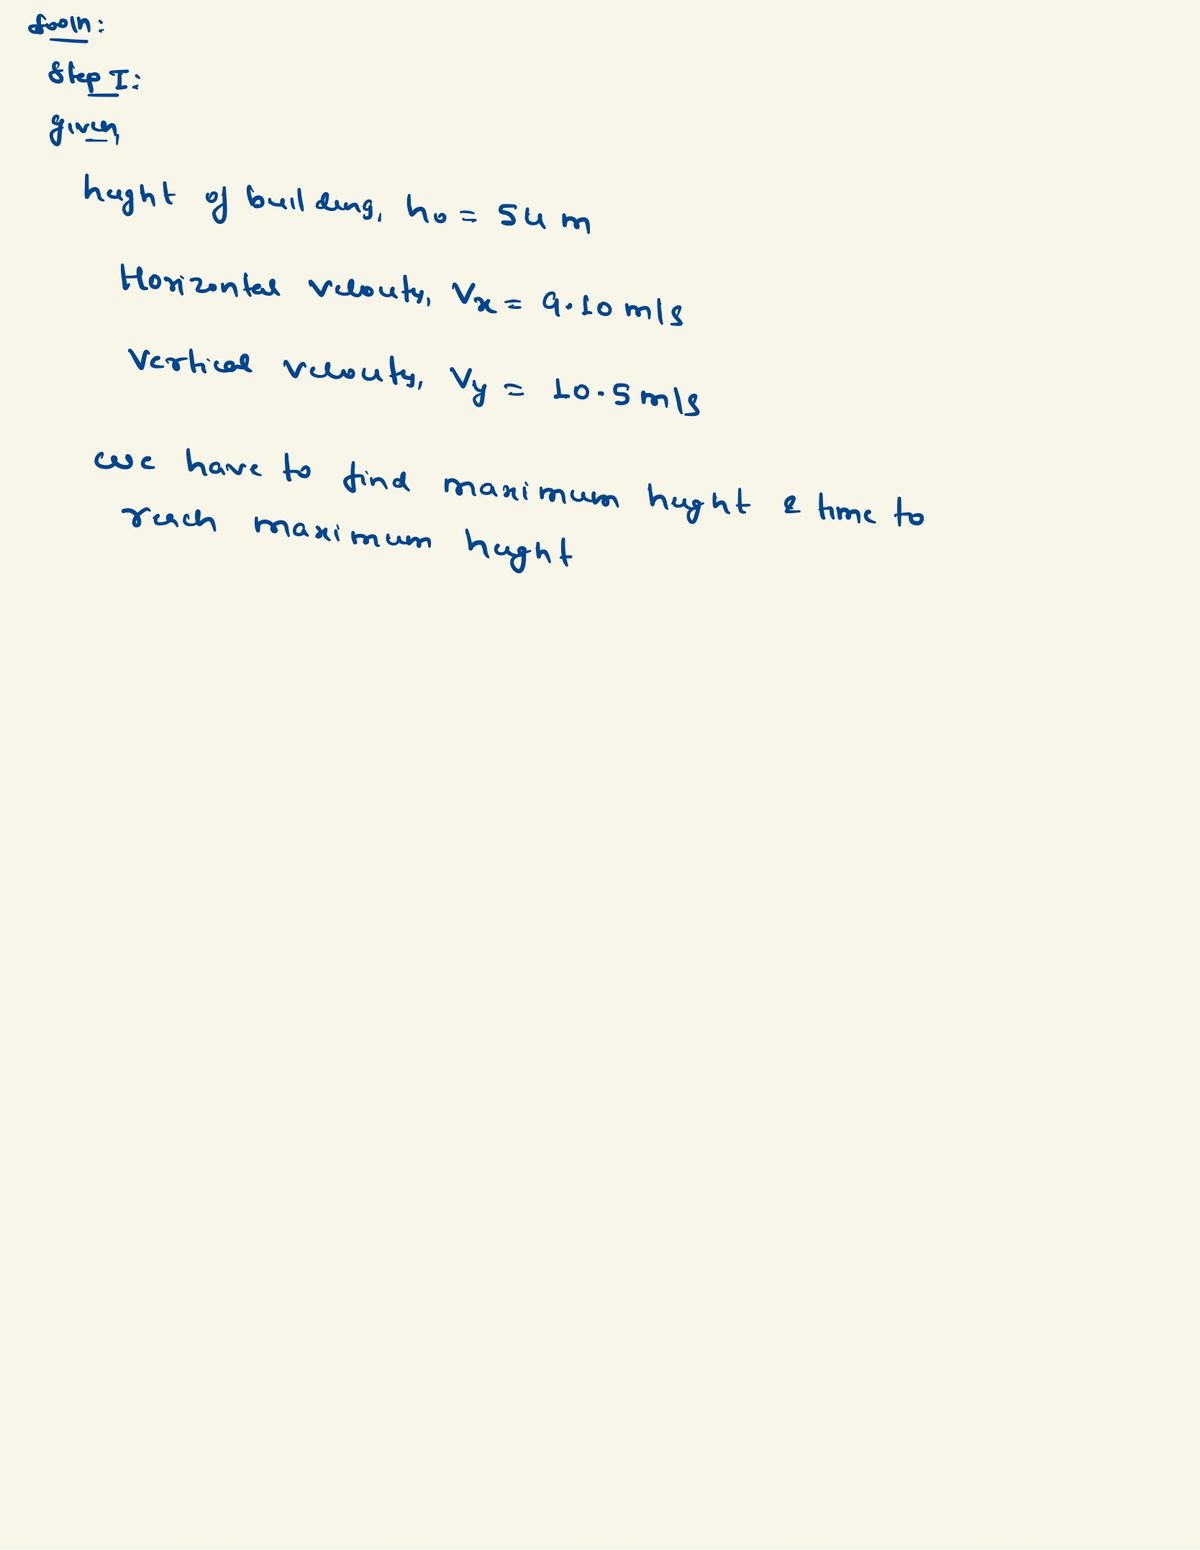 Sooln:
Step I:
given,
height of building, h0 = 54 m
Horizontal velocity, Vx = 9.10 m/s
Vertical velocity, Vy = 10.5 m/s
we have to find maximum height & time to
reach maximum height